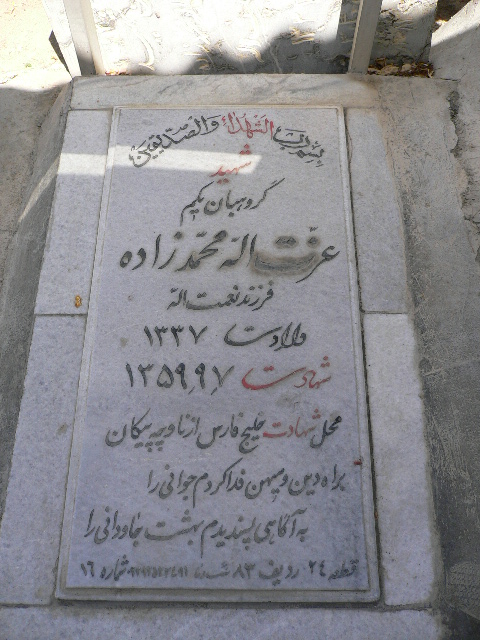 بسم رب الشهداء والصدیقین
شهید
گروهبان یکم
عزت اله محمدزاده
فرزند نعمت اله
ولادت ۱۳۳۷
شهادت ۱۳۵۹٫۹٫۷
محل شهادت خلیج فارس از ناوچه پیکان
براه دین و میهن فدا کردم جوانی را
به آگاهی پسندیدم بهشت جاودانی را
قطعه ۲۴ ردیف ۸۳ شماره ۱۶